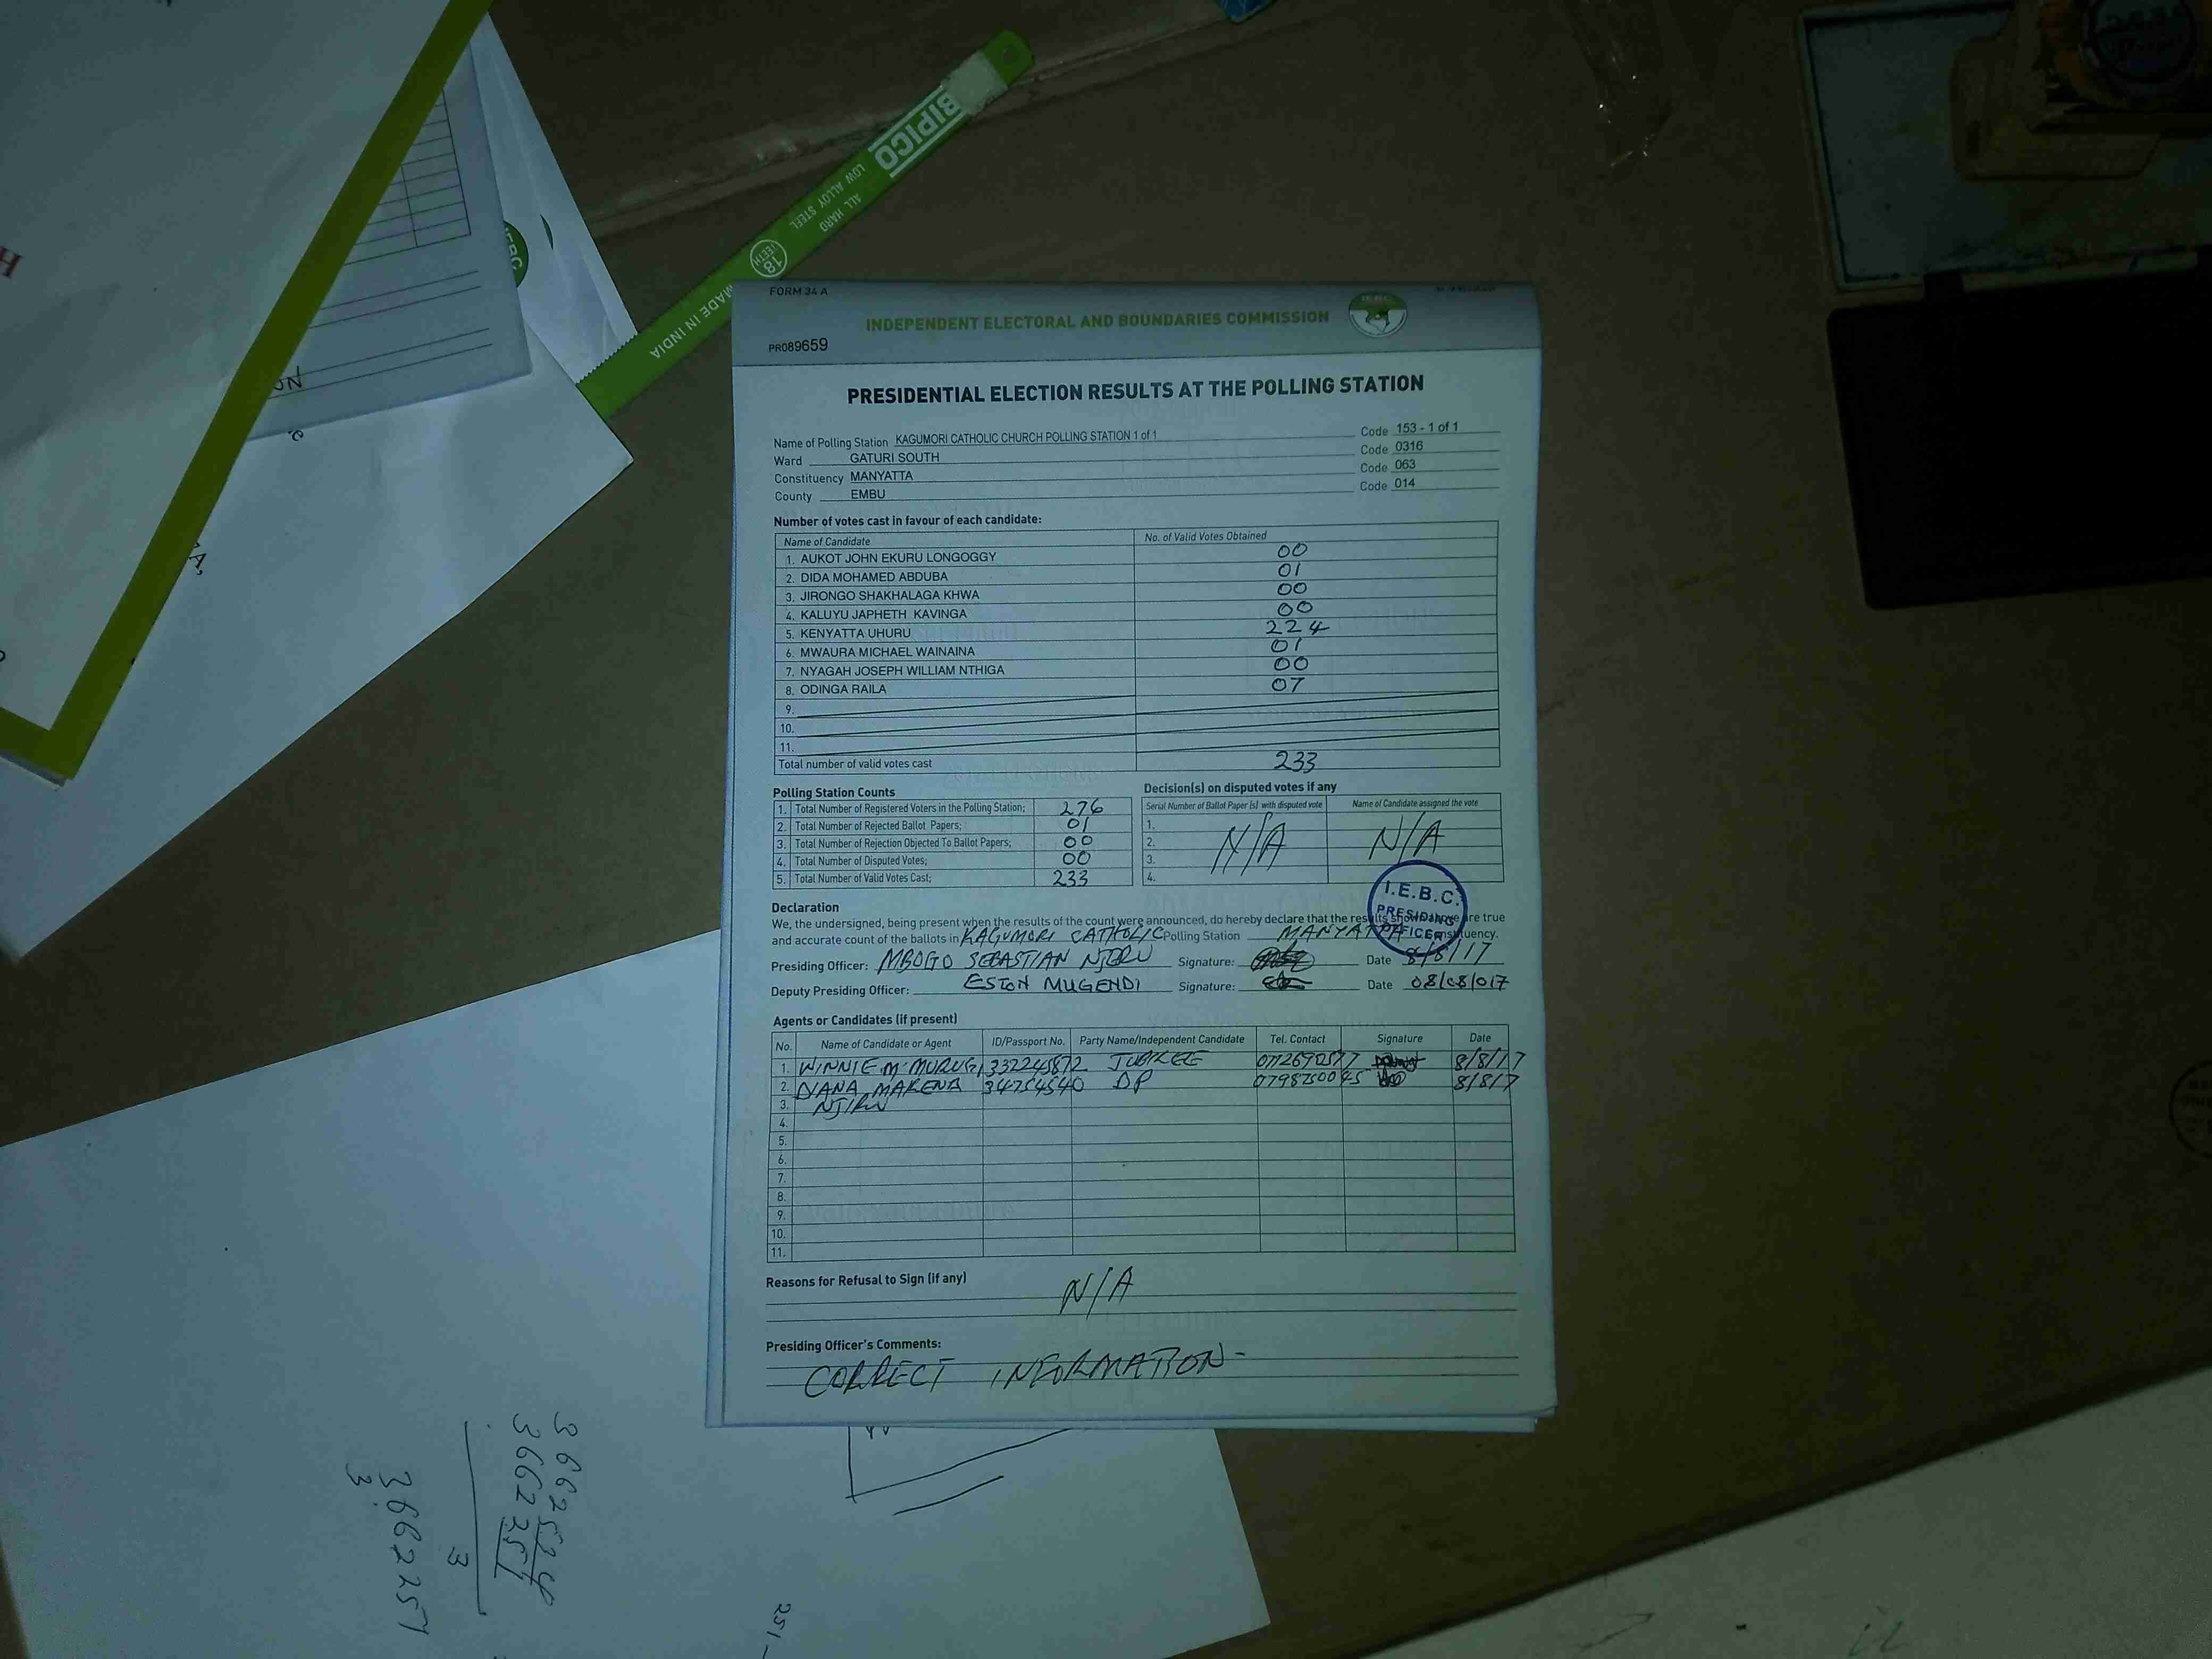 BIPICO
LOW ALLOY STEEL
ALL HARD
18
TEETH
MADE IN INDIA
FORM 34 A
INDEPENDENT ELECTORAL AND BOUNDARIES COMMISSION
PR089659
PRESIDENTIAL ELECTION RESULTS AT THE POLLING STATION
Name of Polling Station KAGUMORI CATHOLIC CHURCH POLLING STATION 1 of 1 Code 153 - 1 of 1
Ward GATURI SOUTH Code 0316
Constituency MANYATTA Code 063
County EMBU Code 014
Number of votes cast in favour of each candidate:
Name of Candidate No. of Valid Votes Obtained
1. AUKOT JOHN EKURU LONGOGGY 00
2. DIDA MOHAMED ABDUBA 01
3. JIRONGO SHAKHALAGA KHWA 00
4. KALUYU JAPHETH KAVINGA 00
5. KENYATTA UHURU 224
6. MWAURA MICHAEL WAINAINA 01
7. NYAGAH JOSEPH WILLIAM NTHIGA 00
8. ODINGA RAILA 07
9.
10.
11.
Total number of valid votes cast 233
Polling Station Counts
1. Total Number of Registered Voters in the Polling Station; 276
2. Total Number of Rejected Ballot Papers; 01
3. Total Number of Rejection Objected To Ballot Papers; 00
4. Total Number of Disputed Votes; 00
5. Total Number of Valid Votes Cast; 233
Decision(s) on disputed votes if any
Serial Number of Ballot Paper (s) with disputed vote Name of Candidate assigned the vote
1.
2. N/A N/A
3.
4.
I.E.B.C.
PRESIDING
OFFICER
Declaration
We, the undersigned, being present when the results of the count were announced, do hereby declare that the results shown above are true
and accurate count of the ballots in KAGUMORI CATHOLIC Polling Station MANYATTA Constituency.
Presiding Officer: MBOGO SEBASTIAN NJERU Signature: Date 8/8/17
Deputy Presiding Officer: ESTON MUGENDI Signature: Date 08/08/017
Agents or Candidates (if present)
No. Name of Candidate or Agent ID/Passport No. Party Name/Independent Candidate Tel. Contact Signature Date
1. WINNIE M. MURUGI JUBILEE 8/8/17
2. DIANA MAKENA 34754540 DP 8/8/7
3. NJIRU
4.
5.
6.
7.
8.
9.
10.
11.
Reasons for Refusal to Sign (if any)
N/A
Presiding Officer's Comments:
CORRECT INFORMATION-
3662251
3
251-